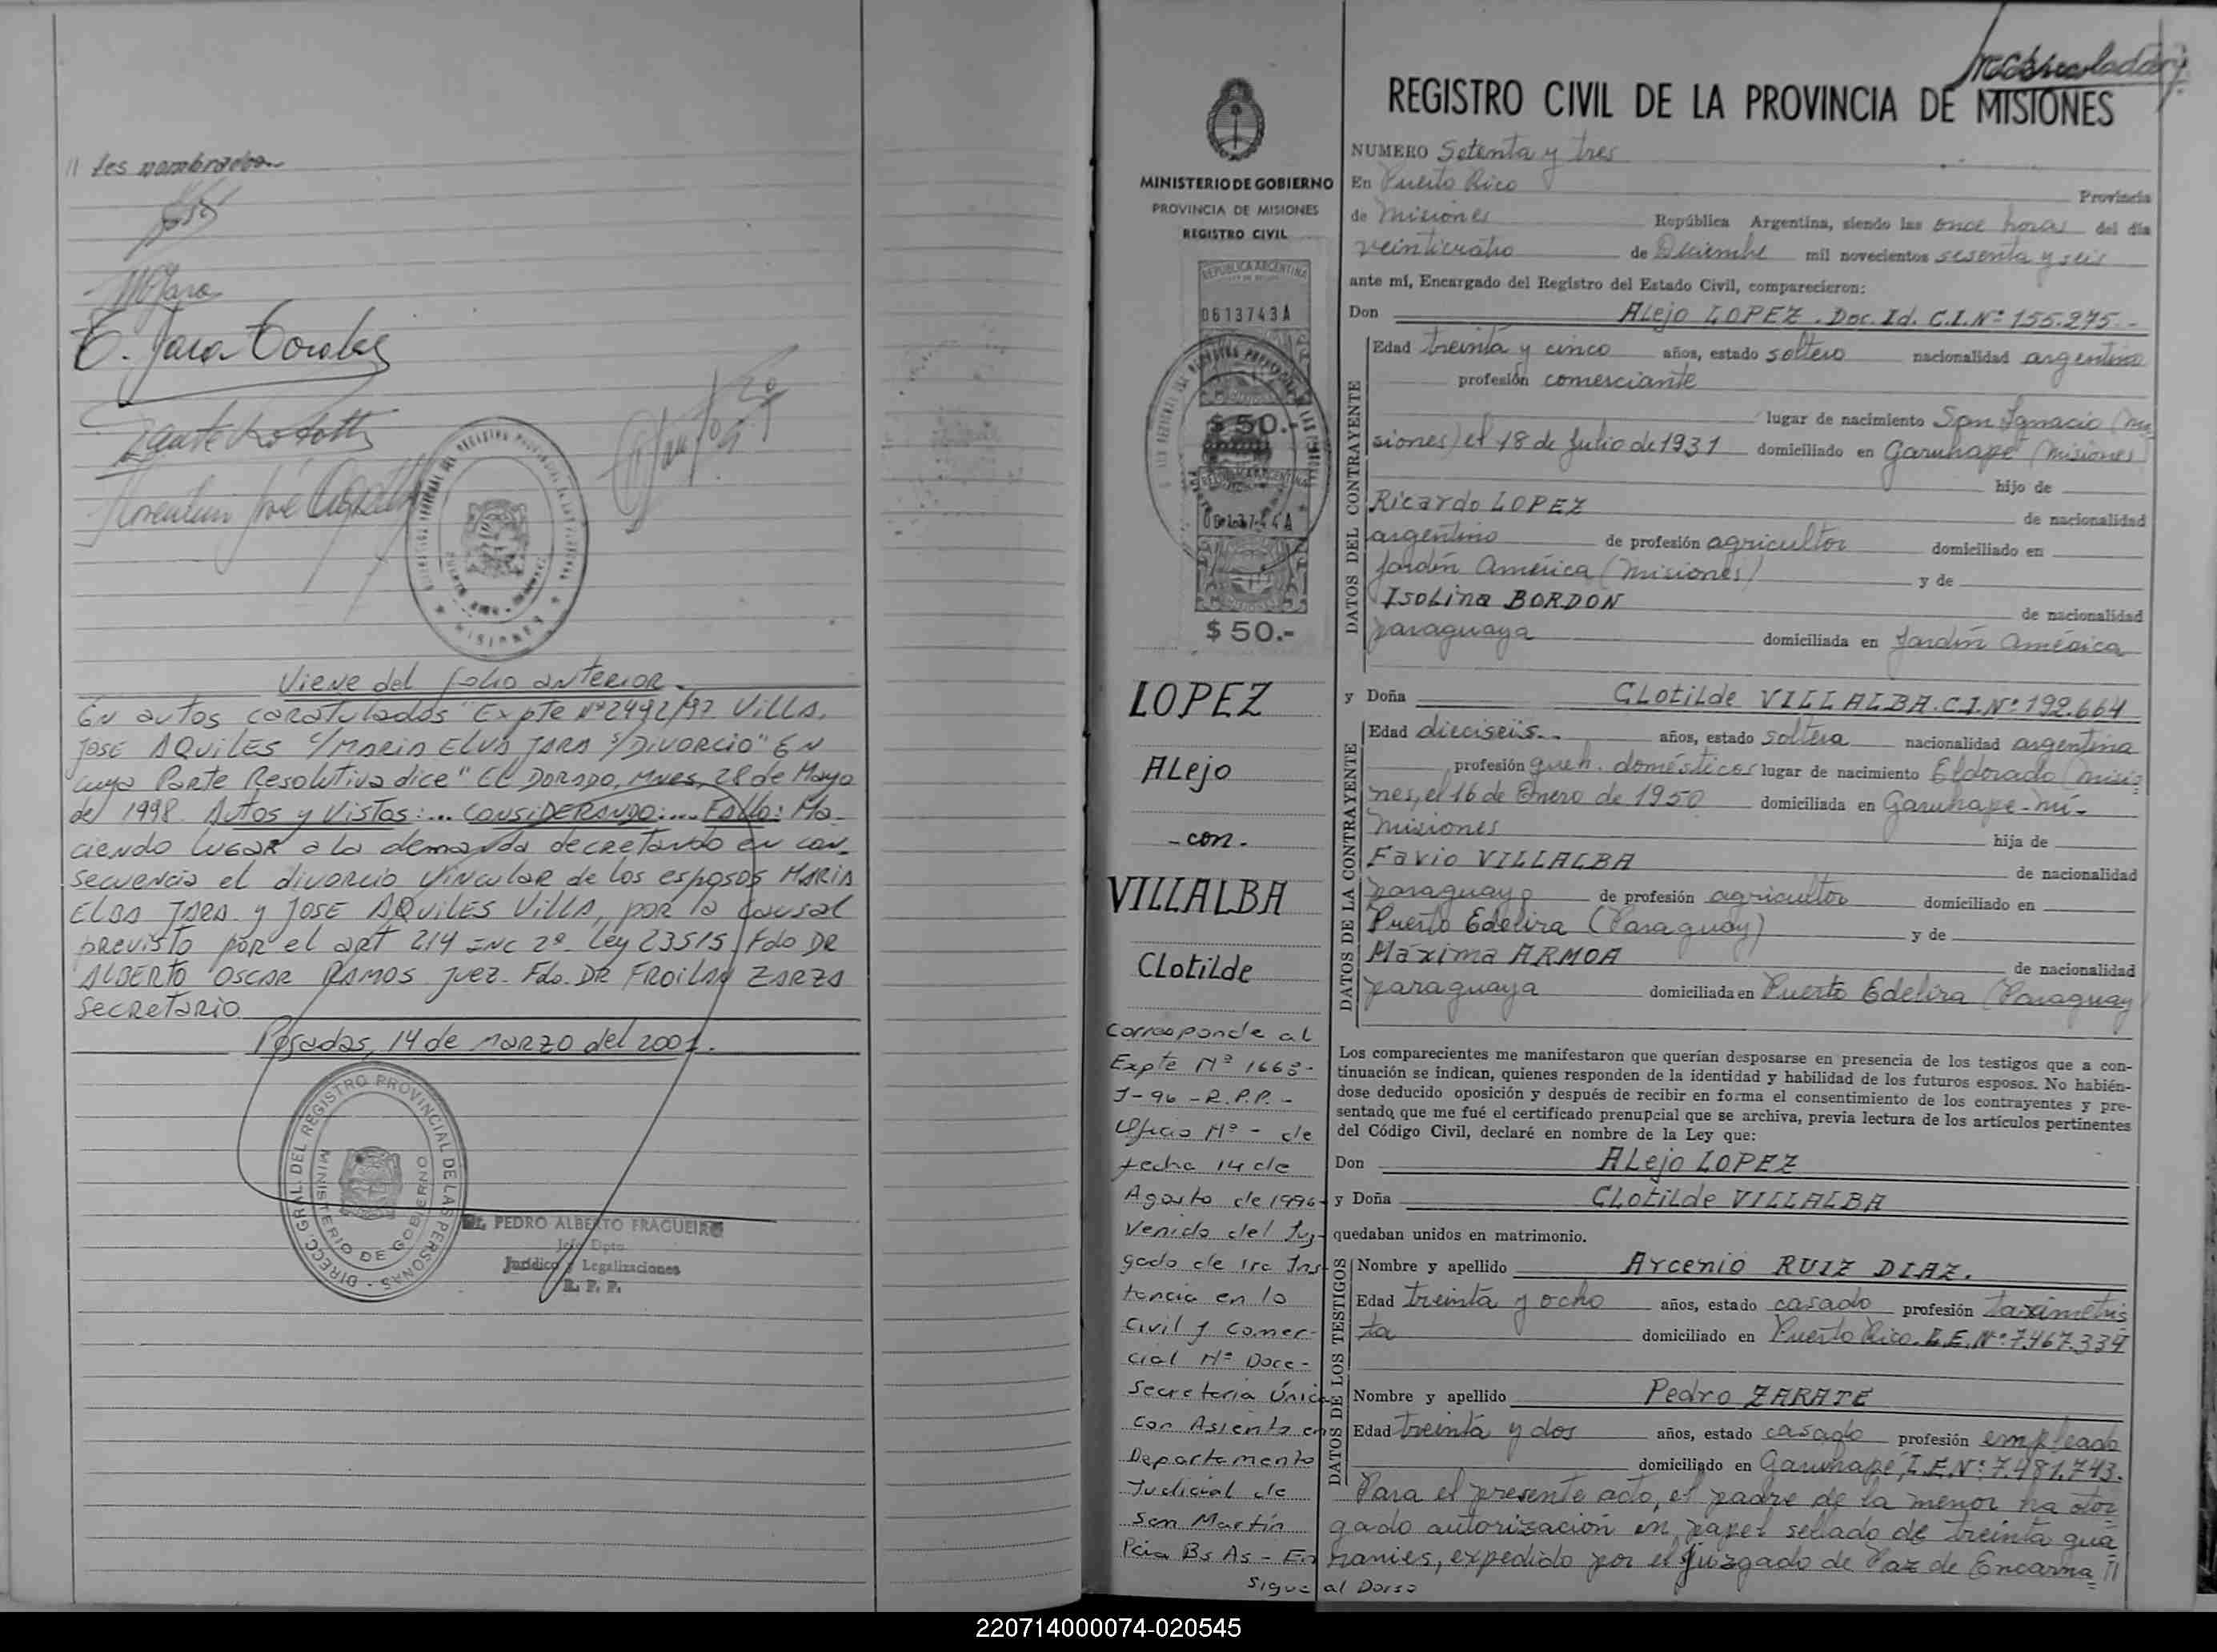 // tes nombrados
E. Jara Torales
REGISTRO PROVINCIAL
MISIONES
Viene del folio anterior.
En autos caratulados "Expte Nº 2492/92 Villa,
JOSE AQUILES c/MARIA ELVA JARA s/DIVORCIO" EN
cuya Parte Resolutiva dice "EL DORADO, Mnes, 28 de Mayo
de 1998. Autos y Vistos:... CONSIDERANDO:.... FALLO: Ha-
ciendo lugar a la demanda decretando en con-
secuencia el divorcio vincular de los esposos MARIA
ELBA JARA y JOSE AQUILES VILLA, por la causal
previsto por el art 214 INC 2º Ley 23515 Fdo DR
ALBERTO OSCAR RAMOS Juez. Fdo. DR FROILAN ZARZA
Secretario
Posadas, 14 de MARZO del 2001.
DIRECC. GRAL. DEL REGISTRO PROVINCIAL DE LAS PERSONAS
MINISTERIO DE GOBIERNO
Dr. PEDRO ALBERTO FRAGUEIRO
Jefe Dpto
Jurídico y Legalizaciones
R. P. P.
MINISTERIO DE GOBIERNO
PROVINCIA DE MISIONES
REGISTRO CIVIL
REPUBLICA ARGENTINA
0613743A
$ 50.-
0613744A
$ 50.-
LOPEZ
Alejo
-con-
VILLALBA
Clotilde
Corresponde al
Expte Nº 1663-
J-96-R.P.P.-
Oficio Nº - de
fecha 14 de
Agosto de 1996-
Venido del Juz-
gado de 1ra Ins
tancia en lo
Civil y Comer-
cial Nº Doce-
Secretaria Única
Con Asiento en
Departamento
Judicial de
San Martín
Pcia Bs As - En
Sigue al Dorso
REGISTRO CIVIL DE LA PROVINCIA DE MISIONES
NUMERO Setenta y tres
En Puerto Rico Provincia
de Misiones República Argentina, siendo las once horas del día
veinticuatro de Diciembre mil novecientos sesenta y seis
ante mí, Encargado del Registro del Estado Civil, comparecieron:
Don Alejo LOPEZ. Doc. Id. C.I. Nº 155.275.-
DATOS DEL CONTRAYENTE
Edad treinta y cinco años, estado soltero nacionalidad argentino
profesión comerciante
lugar de nacimiento San Ignacio (Mi
siones) el 18 de Julio de 1931 domiciliado en Garuhapé (Misiones)
hijo de
Ricardo LOPEZ de nacionalidad
argentino de profesión agricultor domiciliado en
Jardín América (Misiones) y de
Isolina BORDON de nacionalidad
paraguaya domiciliada en Jardín América
y Doña Clotilde VILLALBA. C.I. Nº 192.664
DATOS DE LA CONTRAYENTE
Edad dieciseis.- años, estado soltera nacionalidad argentina
profesión queh. domésticos lugar de nacimiento Eldorado (Misio
nes, el 16 de Enero de 1950 domiciliada en Garuhape-mí-
Misiones hija de
Favio VILLALBA de nacionalidad
paraguayo de profesión agricultor domiciliado en
Puerto Edelira (Paraguay) y de
Máxima ARMOA de nacionalidad
paraguaya domiciliada en Puerto Edelira (Paraguay
Los comparecientes me manifestaron que querían desposarse en presencia de los testigos que a con-
tinuación se indican, quienes responden de la identidad y habilidad de los futuros esposos. No habién-
dose deducido oposición y después de recibir en forma el consentimiento de los contrayentes y pre-
sentado que me fué el certificado prenupcial que se archiva, previa lectura de los artículos pertinentes
del Código Civil, declaré en nombre de la Ley que:
Don Alejo LOPEZ
y Doña Clotilde VILLALBA
quedaban unidos en matrimonio.
DATOS DE LOS TESTIGOS
Nombre y apellido Arcenio RUIZ DIAZ.
Edad treinta y ocho años, estado casado profesión taximetris
ta domiciliado en Puerto Rico. L.E. Nº: 7.467.334
Nombre y apellido Pedro ZARATE
Edad treinta y dos años, estado casado profesión empleado
domiciliado en Garuhapé, L.E. Nº: 7.481.743.
Para el presente acto, el padre de la menor ha otor
gado autorización en papel sellado de treinta gua
ranies, expedido por el Juzgado de Paz de Encarna //
220714000074-020545